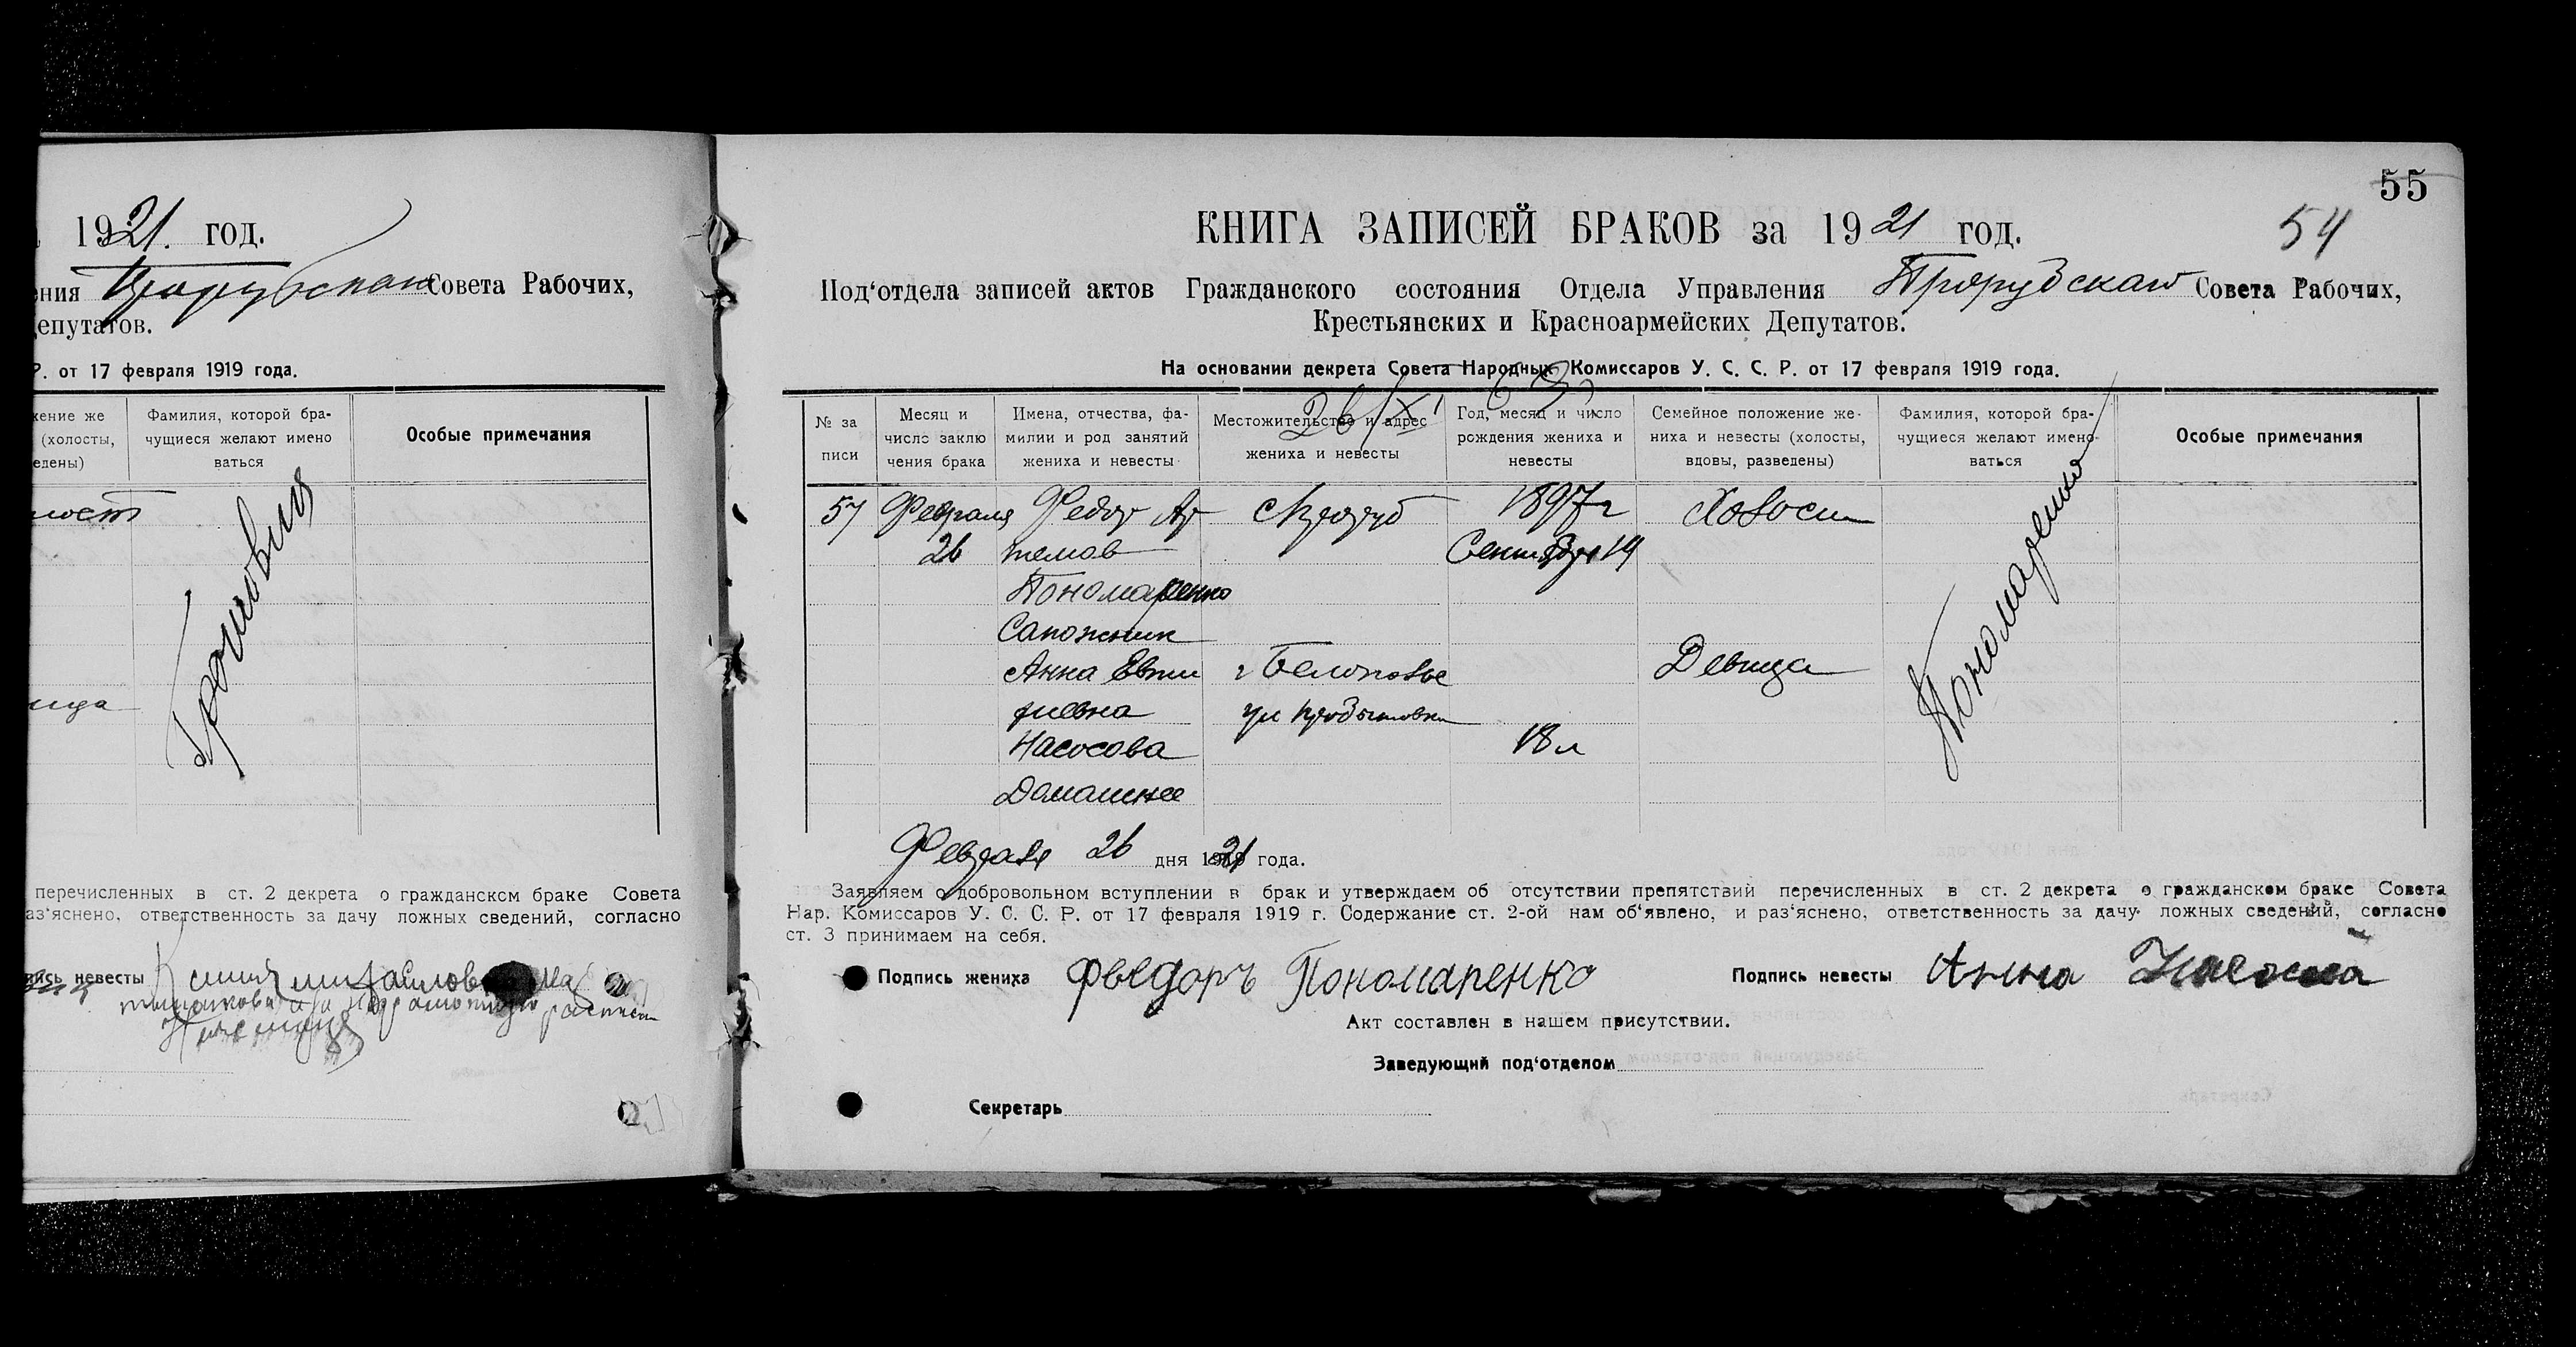 1921. год.
ения Прорубскаго Совета Рабочих,
депутатов.
Р. от 17 февраля 1919 года.
жение же
(холосты,
едены)
Фамилия, которой бра-
чущиеся желают имено
ваться
Особые примечания
лост
ица
перечисленных в ст. 2 декрета о гражданском браке Совета
аз'яснено, ответственность за дачу ложных сведений, согласно
пись невесты
55
54
КНИГА ЗАПИСЕЙ БРАКОВ за 1921 год.
Под'отдела записей актов Гражданского состояния Отдела Управления Прорубскаго Совета Рабочих,
Крестьянских и Красноармейских Депутатов.
На основании декрета Совета Народных Комиссаров У. С. С. Р. от 17 февраля 1919 года.
№ за
писи
Месяц и
число заклю
чения брака
Имена, отчества, фа-
милии и род занятий
жениха и невесты
Местожительство и адрес
жениха и невесты
26/XI
Год, месяц и число
рождения жениха и
невесты
Семейное положение же-
ниха и невесты (холосты,
вдовы, разведены)
Фамилия, которой бра-
чущиеся желают имено-
ваться
Особые примечания
57 Февраля Федор Ар с Проруб 1897 г Холост
26 темов Сентября 14
Пономаренко
Сапожник
Анна Евти г Белополье Девица
фиевна ул
Насосова 18 л
Домашнее
Пономаренко
Февраля 26 дня 1921 года.
Заявляем о добровольном вступлении в брак и утверждаем об отсутствии препятствий перечисленных в ст. 2 декрета о гражданском браке Совета
Нар. Комиссаров У. С. С. Р. от 17 февраля 1919 г. Содержание ст. 2-ой нам об'явлено, и раз'яснено, ответственность за дачу ложных сведений, согласно
ст. 3 принимаем на себя.
Подпись жениха Фьедоръ Пономаренко Подпись невесты Анна
Акт составлен в нашем присутствии.
Заведующий под'отделом
Секретарь